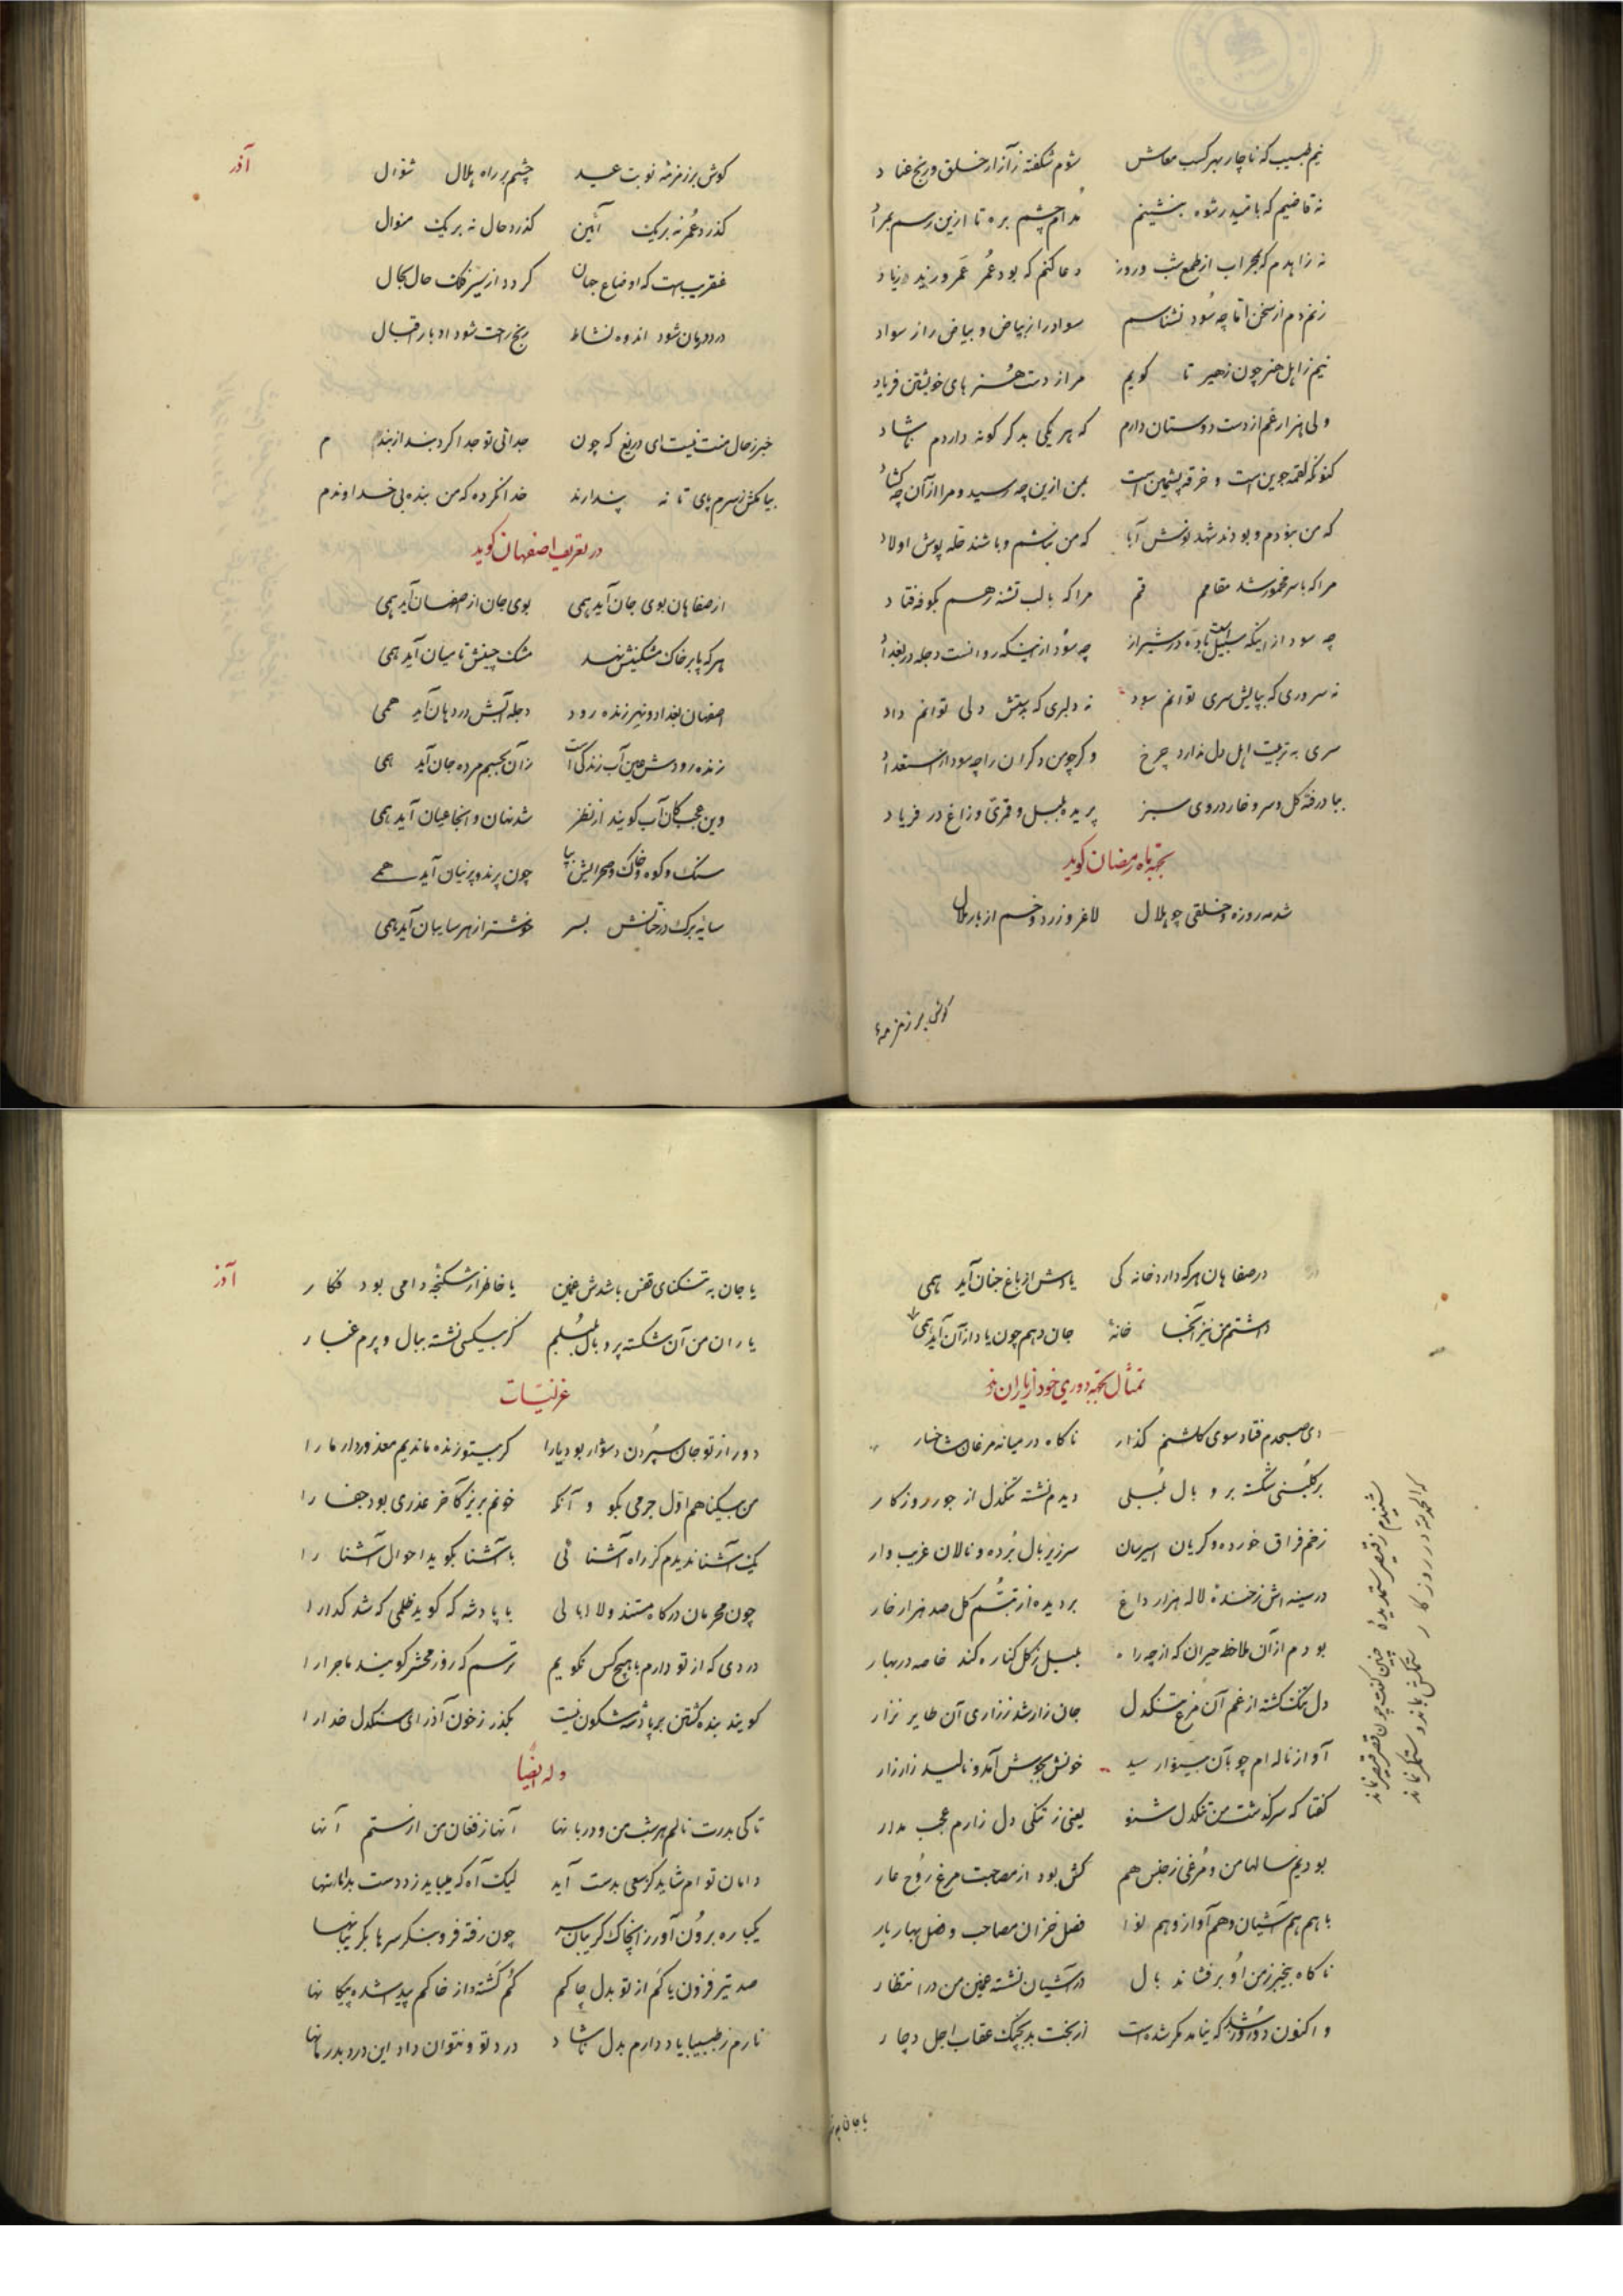 نیم طبیب که ناچار بهر کسب معاش شوم شکفته ز آزار خلق و رنج عباد
نه قاضیم که بامید رشوه بنشینم مدام چشم بره تا ازین رسم بمراد
نه زاهدم که بمحراب از طمع شب و روز دعا کنم که بود عمر عمرو و زید زیاد
زنم دم از سخن اما چه سود نشناسم سواد را از بیاض و بیاض را ز سواد
نیم ز اهل هنر چون ظهیر تا گویم مرا ز دست هنرهای خویشتن فریاد
ولی هزار غم از دست دوستان دارم که هر یکی بدگر گونه داردم ناشاد
کنونکه لقمه جوین است و خرقه پشمین است بمن ازین چه رسید و مرا از آن چه گشاد
که من نبودم و بودند شهد نوش آبا که من نباشم و باشند حله پوش اولاد
مرا که با سر مخمور شد مقامم قم مرا که با لب تشنه رهم بکوفه فتاد
چه سود از اینکه سبیل است باده در شیراز چه سود ازینکه روانست دجله در بغداد
نه سروری که بپایش سری توانم سود نه دلبری که بدستش دلی توانم داد
سری به تربیت اهل دل ندارد چرخ وگر چو من دگران را چه سود از استعداد
بباد رفته گل و سرو و خار در وی سبز پریده بلبل و قمری و زاغ در فریاد
بجهة ماه رمضان گوید
شد مه روزه و خلقی چو هلال لاغر و زرد و خم از بار ملال
گوش بر زمزمهٔ
آذر
گوش بر زمزمه نوبت عید چشم بر راه هلال شوال
گذرد عمر نه بر یک آئین گذرد حال نه بر یک منوال
عنقریب است که اوضاع جهان گردد از سیر فلک حال بحال
درد درمان شود اندوه نشاط رنج راحت شود ادبار اقبال
خبر ز حال منت نیست ای دریغ که چون جدائی تو جدا کرد بند از بندم
بیا مکش ز سرم پای تا نه پندارند خدا نکرده که من بنده بی خداوندم
در تعریف اصفهان گوید
از صفاهان بوی جان آید همی بوی جان از اصفهان آید همی
هر که پا بر خاک مشکینش نهد مشک چینش تا میان آید همی
اصفهان بغداد و نهر زنده رود دجله آبش در دهان آید همی
زنده رودش عین آب زندگی است زان بجسم مرده جان آید همی
وین عجب کان آب گویند از نظر شد نهان و اینجا عیان آید همی
سنک و کوه و خاک و صحرایش بپا چون پرند و پرنیان آید همی
سایهٔ برک درختانش بسر خوشتر از هر سایبان آید همی
در صفاهان هر که دارد خانه کی یادش از باغ جنان آید همی
داشتم من نیز آنجا خانهٔ جان دهم چون یاد از آن آید همی
تمثال بجهة دوری خود از یاران
دی صبحدم فتاد سوی گلشنم گذار ناگاه در میانه مرغان شاخسار
بر گلبنی شکسته پر و بال بلبلی دیدم نشسته تنگدل از جور روزگار
زخم فراق خورده و گریان اسیرسان سر زیر بال برده و نالان غریب وار
در سینه اش ز خندهٔ لاله هزار داغ بر دیده از تبسم گل صد هزار خار
بودم از آن ملاحظه حیران که از چه راه بلبل ز گل کناره کند خاصه در بهار
دل تنگ گشته از غم آن مرغ تنگدل جان زار شد ز زاری آن طایر نزار
آواز ناله ام چو بآن بینوا رسید خونش بجوش آمد و نالید زار زار
گفتا که سرگذشت من تنگدل شنو یعنی ز تنگی دل زارم عجب مدار
بودیم سالها من و مرغی ز جنس هم کش بود از مصاحبت مرغ روح عار
با هم هم آشیان و هم آواز و هم نوا فصل خزان مصاحب و فصل بهار یار
ناگاه بیخبر ز من او برفشاند بال در آشیان نشسته غمین من در انتظار
و اکنون دو روز شد که نیامد مگر شده است از بخت بد بچنگ عقاب اجل دچار
شنیدم ز قیصر ستمدیدهٔ چنین گفت چون قصر قیصر نماند
که الحمد لله در روزگار ستمکش بماند و ستمگر نماند
یا جان به
آذر
یا جان به تنگنای قفس باشدش غمین یا خاطر از شکنجه دامی بود فکار
یاران من آن شکسته پر و بال بلبلم کز بیکسی نشسته ببال و پرم غبار
غزلیات
دور از تو جان سپردن دشوار بود یارا گر بیتو زنده ماندیم معذور دار ما را
من بیگناهم اول جرمی بگو و آنگه خونم بریز کآخر عذری بود جفا را
یک آشنا ندیدم کز راه آشنائی با آشنا بگوید احوال آشنا را
چون محرمان درگاه مستند و لاابالی با پادشه که گوید ظلمی که شد گدا را
دردی که از تو دارم با هیچکس نگویم ترسم که روز محشر گویند ماجرا را
گویند بنده کشتن بر پادشه شگون نیست بگذر ز خون آذر ای سنگدل خدا را
وله ایضا
تا کی بدرت نالم هر شب من و دربانها آنها ز فغان من از ستم آنها
دامان توام شاید کز سعی بدست آید لیک آه که میباید زد دست بدامانها
یکباره برون آور ز آنچاک گریبان سر چون رفته فرو بنگر سرها بگریبانها
صد تیر فزون یا کم از تو بدل چاکم گم گشته و از خاکم پیدا شده پیکانها
نارم ز طبیبا یاد دارم بدل ناشاد درد تو و نتوان داد این درد بدرمانها